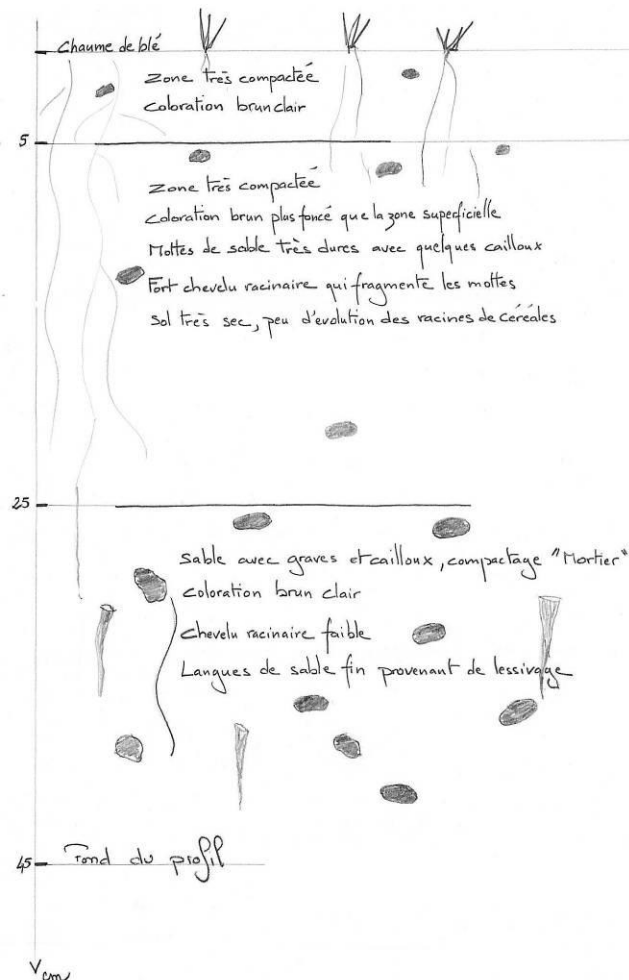 Chaume de blé
Zone très compactée
Coloration brun clair
5
Zone très compactée
Coloration brun plus foncé que la zone superficielle
Mottes de sable très dures avec quelques cailloux
Fort chevelu racinaire qui fragmente les mottes
Sol très sec, peu d'évolution des racines de céréales
25
Sable avec graves et cailloux, compactage "Mortier"
Coloration brun clair
Chevelu racinaire faible
Langues de sable fin provenant de lessivage
45 Fond du profil
V cm